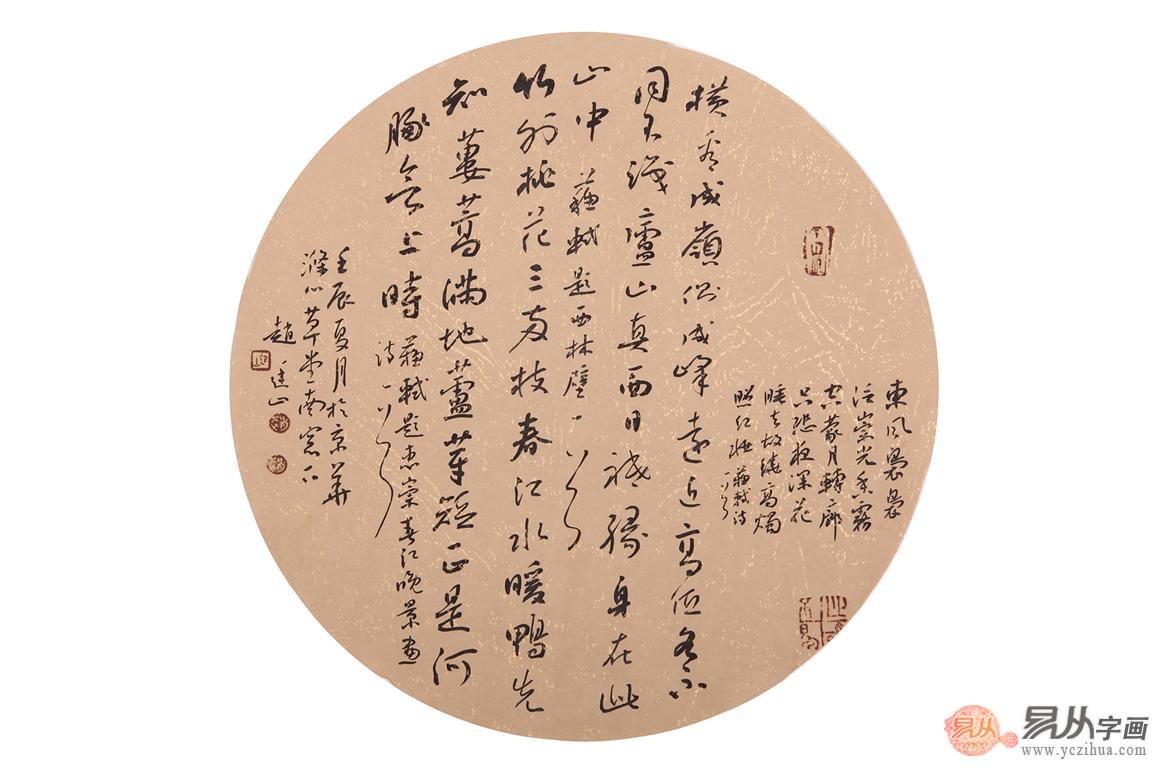 東風裊裊
泛崇光香霧
空蒙月轉廊
只恐夜深花
睡去故燒高燭
照红妝 蘇軾詩一首
横看成嶺側成峰遠近高低各不
同不識廬山真面目祗緣身在此
山中 蘇軾題西林壁一首
竹外桃花三两枝春江水暖鴨先
知蔞蒿滿地蘆芽短正是河
豚欲上時 蘇軾題惠崇春江晚景畫
詩一首
壬辰夏月於京華
滌心草堂南窓下
趙
易从
易从字画
www.yczihua.com